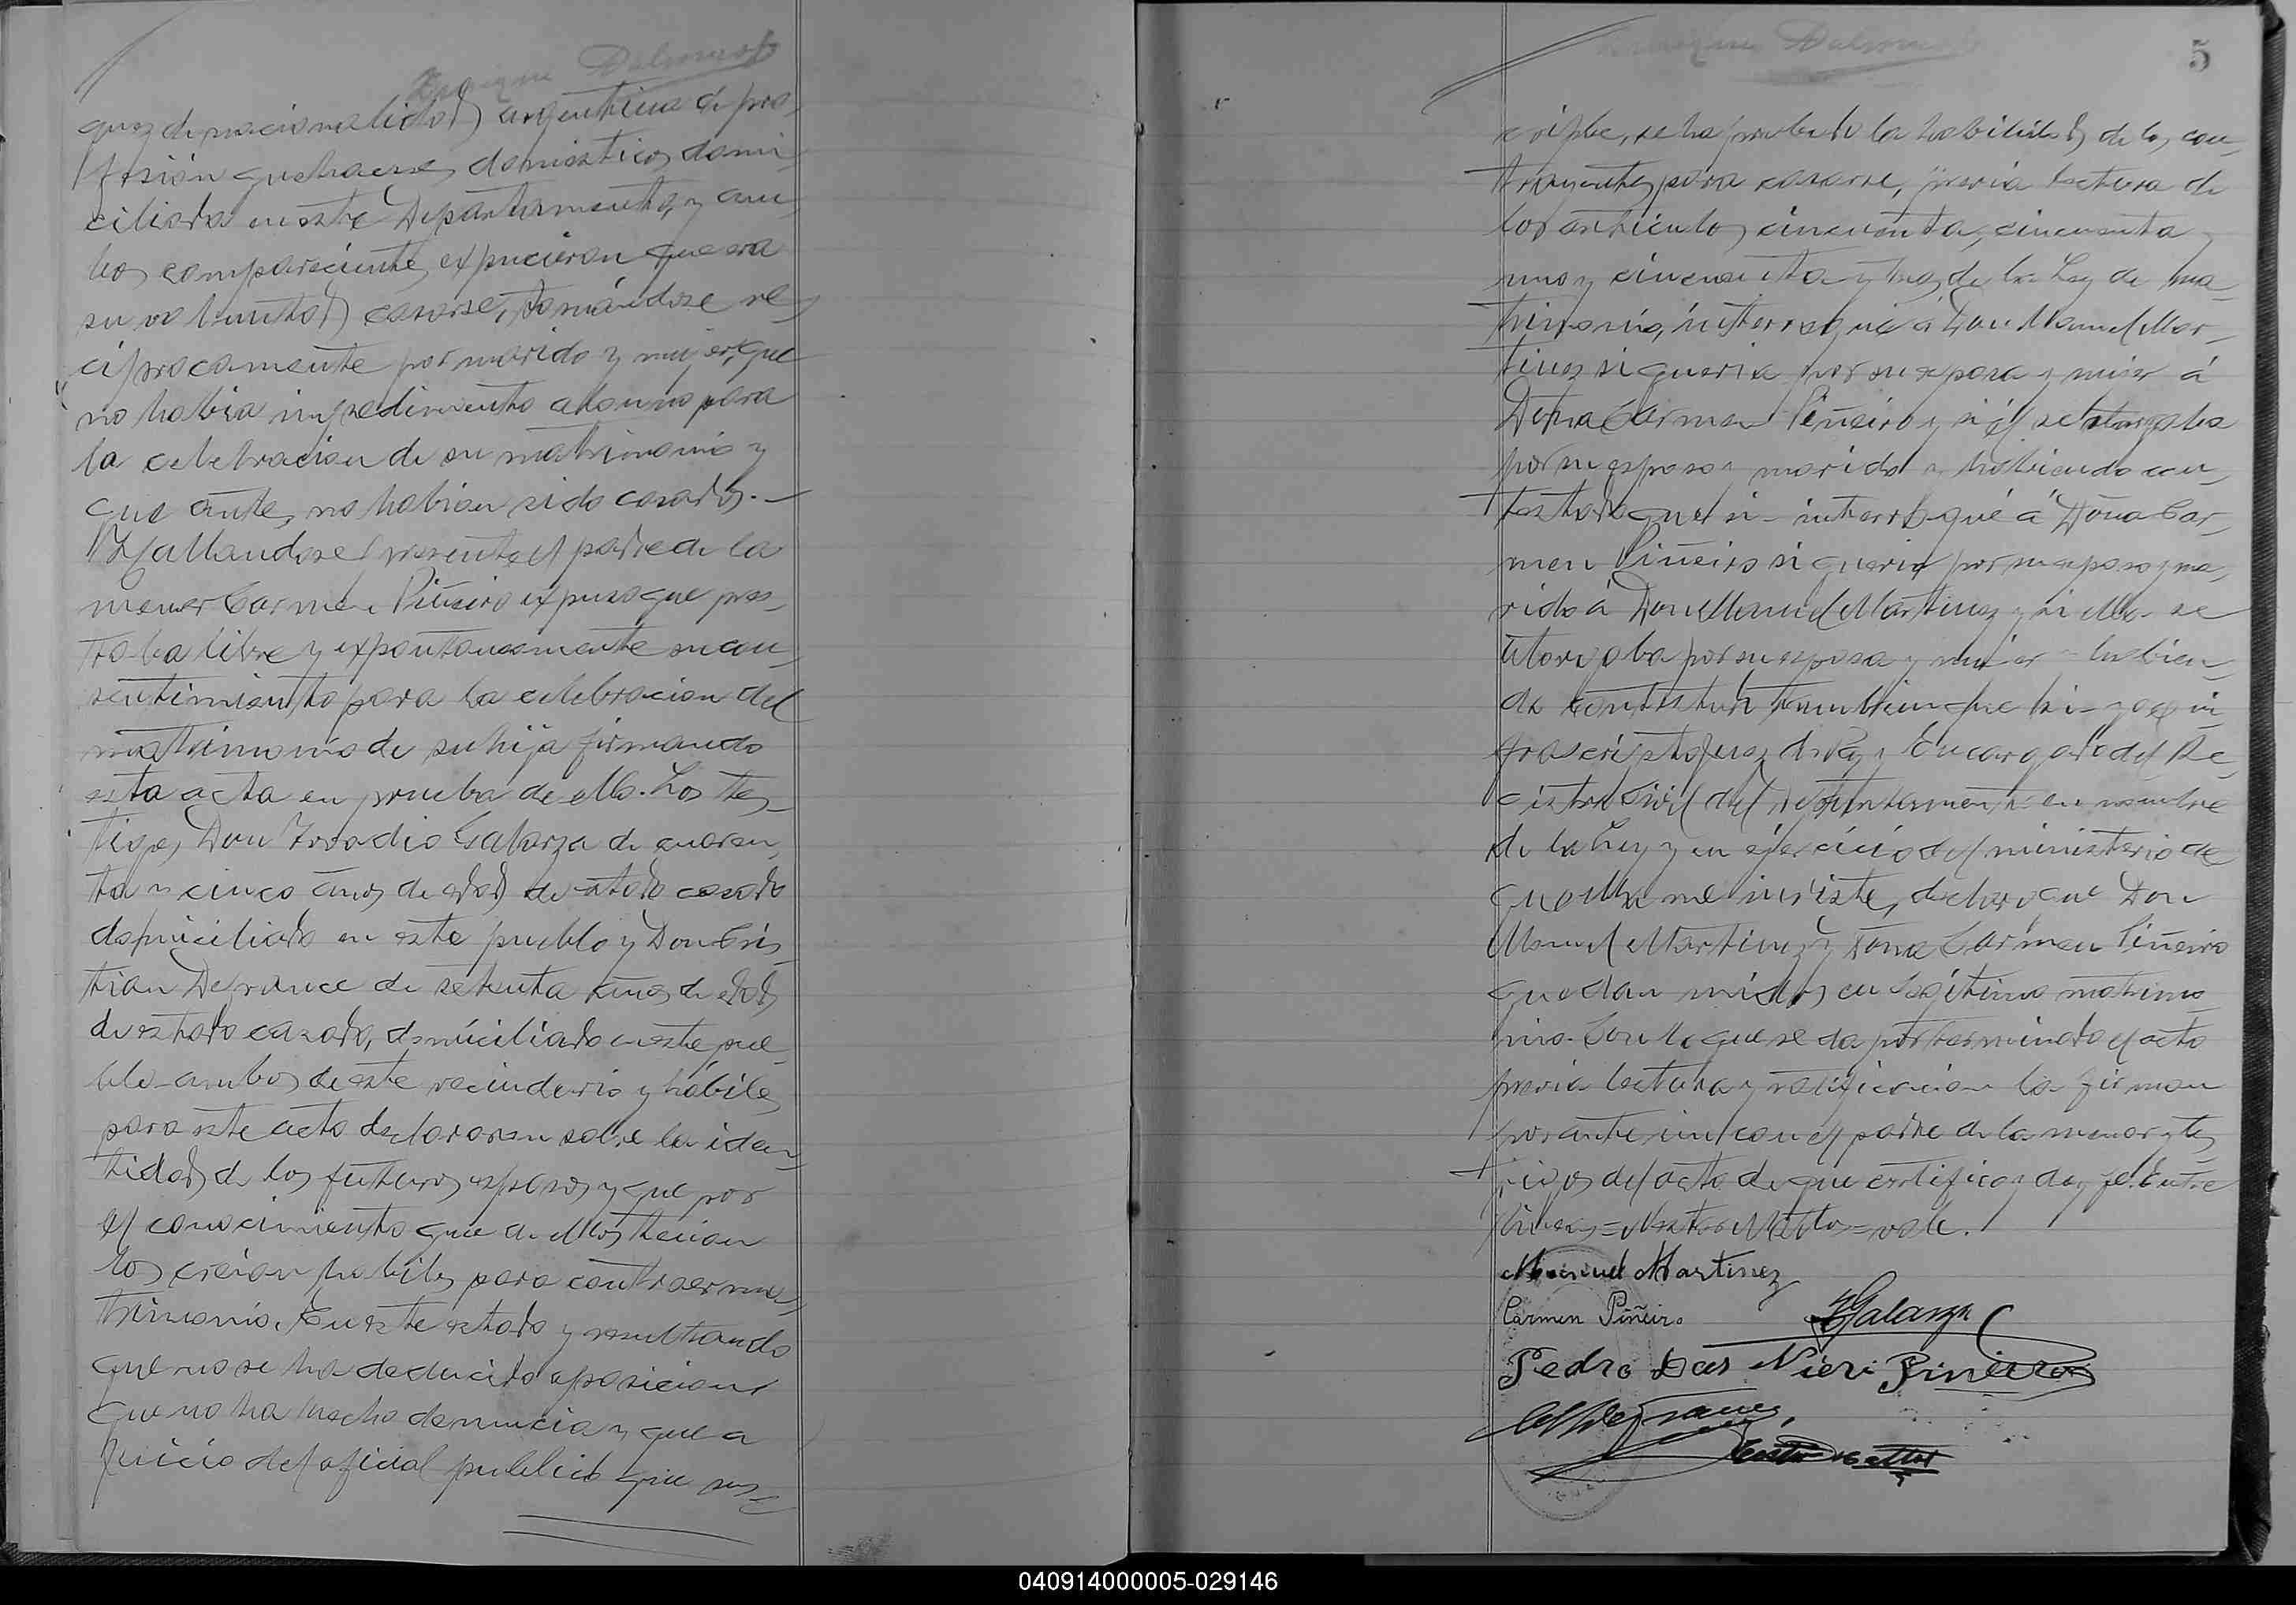 Dalmasto
guez de nacionalidad argentina de pro-
fesión quehaceres domésticos domi-
ciliada en este Departamento, y am-
bos comparecientes expucieron que era
su voluntad casarse, tomándose re-
ciprocamente por marido y mujer, que
no habia impedimento alguno para
la celebracion de su matrimonio y
que antes no habian sido casados.-
Hallandose presente el padre de la
menor Carmen Piñeiro expuso que pres-
taba libre y expontaneamente su con-
sentimiento para la celebracion del
matrimonio de su hija firmando
esta acta en prueba de ello. Los tes-
tigos Don Galarza de cuaren-
ta y cinco años de edad de estado casado
domiciliado en este pueblo y Don Cris-
tian Defrance de setenta años de edad
de estado casado, domiciliado en este pue-
blo ambos de este vecindario y hábiles
para este acto declararon sobre la iden-
tidad de los futuros esposos y que por
el conocimiento que de ellos tenian
los creian habiles para contraer ma-
trimonio. En este estado y resultando
que no se ha deducido oposicion
que no ha hecho denuncia y que a
juicio del oficial publico que sus-
5
Dalmasto
cribe, se ha probado la habilidad de los con-
trayentes para casarse, previa lectura de
los articulos cincuenta, cincuenta y
uno y cincuenta y tres de la Ley de ma-
trimonio, interrogué á Don Manuel Mar-
tinez si queria por su esposa y mujer á
Doña Carmen Piñeiro y si él se otorgaba
por su esposo y marido y habiendo con-
testado que si - interrogué á Doña Car-
men Piñeiro si queria por su esposo y ma-
rido á Don Manuel Martinez y si ella se
otorgaba por su esposa y mujer - habien-
do contestado tambien que si - yo el in-
frascripto Juez de Paz y Encargado del Re-
gistro Civil del Departamento en nombre
de la Ley y en ejercicio del ministerio de
que ella me inviste, declaro que Don
Manuel Martinez y Doña Carmen Piñeiro
quedan unidos en legitimo matrimo-
nio. Con lo que se da por terminado el acto
previa lectura y ratificacion la firman
por ante mi con el padre de la menor y tes-
tigos del acto de que certifico y doy fe. Entre
lineas = = vale.
Manuel Martinez
Carmen Piñeiro
Galarza
Pedro Das Piñeiro
040914000005-029146